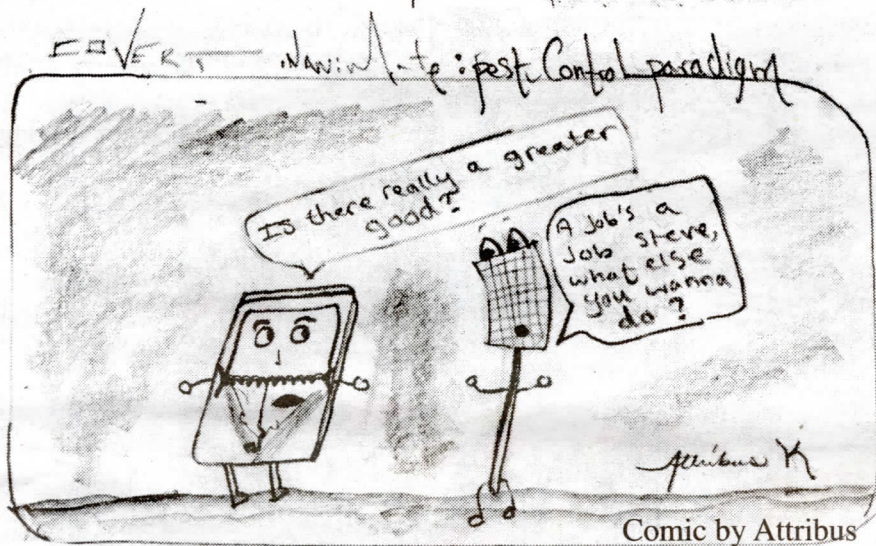 : pest Control paradigm
Is there really a greater
good?
A Job's a
Job steve,
what else
you wanna
do?
Attribus K
Comic by Attribus